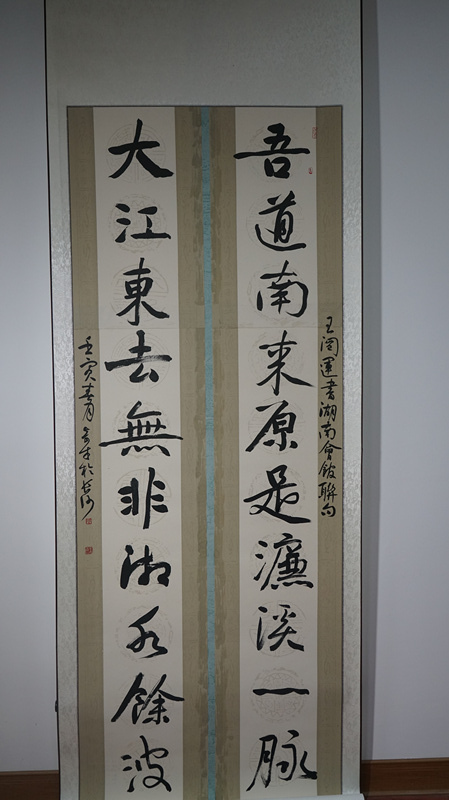 吾道南来原是濂溪一脉
王闿運書湖南會館聯句
大江東去無非湘水餘波
壬寅春月
於長沙